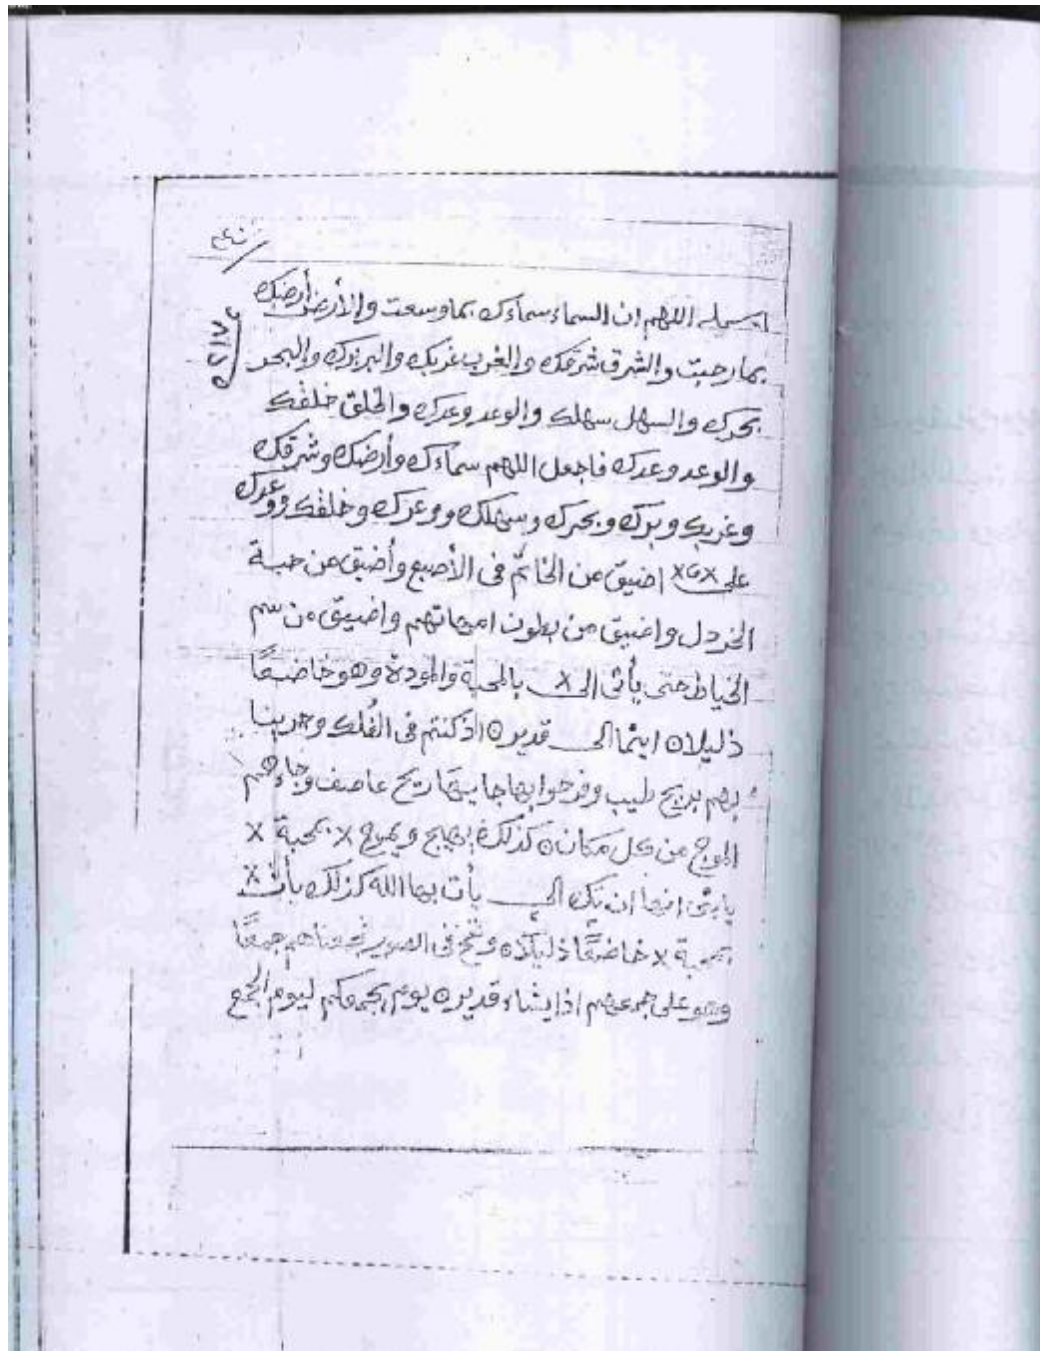 ٢٤٠
بسمله اللهم ان السماء سماءك بما وسعت والأرض أرضك
بما رحبت والشرق شرقك والغرب غربك والبر برك والبحر
بحرك والسهل سهلك والوعد وعدك والخلق خلقك
والوعد وعدك فاجعل اللهم سماءك وأرضك وشرقك
وغربك وبرك وبحرك وسهلك ووعرك وخلقك ووعدك
على اضيق من الخاتم فى الأصبع وأضيق من حبة
الخردل واضيق من بطون امهاتهم واضيق من سم
الخياط حتى يأتى الى x بالمحبة والمودة وهو خاضعًا
ذليلا ٥ اينما الى قدير ٥ اذ كنتم فى الفلك وجرينا
بهم بريح طيب وفرحوا بها جايتها ريح عاصف وجاءهم
الموج من كل مكان ٥ كذلك يهيج ويموج x بمحبة x
انها ان تك الى يأت بها الله كذلك يأت x
بمحبة x خاضعًا ذليلا ٥ ونفخ فى الصور فجمعناهم جمعًا
وهو على جمعهم اذا يشاء قدير ٥ يوم يجمعكم ليوم الجمع